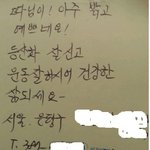 따님이! 아주 밝고
예쁘네요!
등산화 잘 신고
운동 잘 하시어 건강한
삶되세요~
서울. 은평구
T.